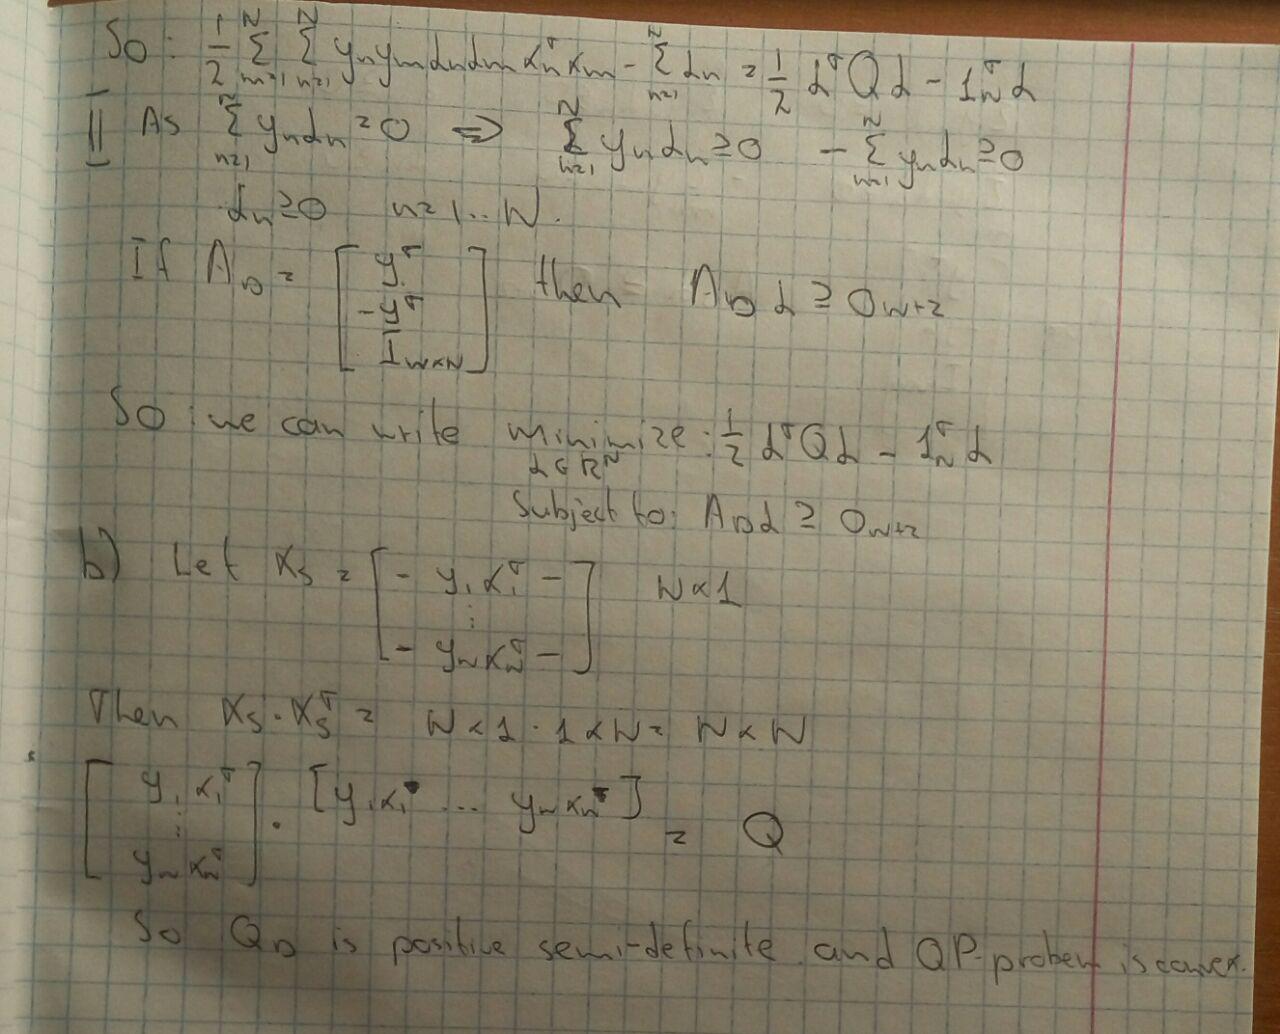 So: 1/2 Σ_{m=1}^N Σ_{n=1}^N y_n y_m α_n α_m x_n^T x_m - Σ_{n=1}^N α_n = 1/2 α^T Q α - 1_N^T α
II As Σ_{n=1}^N y_n α_n = 0 ⇔ Σ_{n=1}^N y_n α_n ≥ 0 - Σ_{n=1}^N y_n α_n ≥ 0
α_n ≥ 0 n = 1 .. N.
If A_D = [ y^T
-y^T
I_{N×N} ] then A_D α ≥ 0_{N+2}
So we can write minimize: 1/2 α^T Q α - 1_N^T α
α ∈ R^N
Subject to: A_D α ≥ 0_{N+2}
b) Let X_S = [ - y_1 x_1^T -
⋮
- y_N x_N^T - ] N × 1
Then X_S · X_S^T = N × 1 · 1 × N = N × N
[ y_1 x_1^T
⋮
y_N x_N^T ] · [ y_1 x_1 ... y_N x_N ] = Q
So Q_D is positive semi-definite and QP-problem is convex.